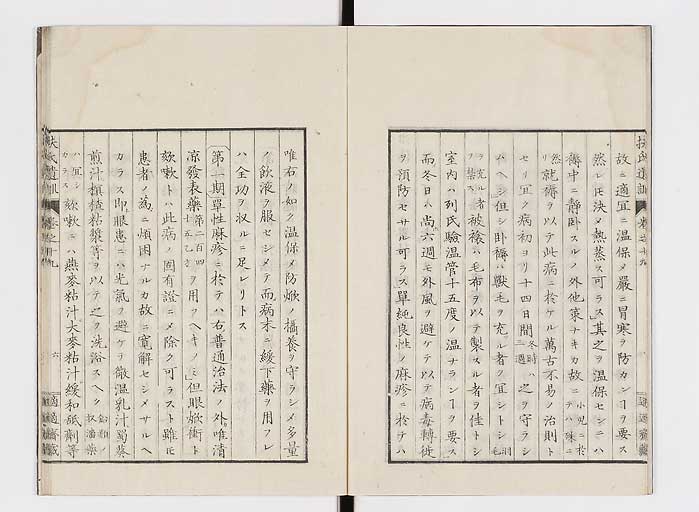 故ニ適宜ニ温保メ嚴ニ冒寒ヲ防カンヿヲ要ス
然レ𪜈决メ熱蒸ス可ラス」其之ヲ温保セシニハ
褥中ニ靜卧スルノ外他策ナキカ故ニ小兒ニ於テハ殊ニ
然リ就褥ヲ以テ此病ニ於ケル萬古不易ノ治則ト
セリ宜ク病初ヨリ十四日間冬時ハ三週之ヲ守ラシ
ムヘシ但シ卧褥ハ獸毛ヲ充ル者ヲ宜シトシ羽毛
ヲ充ル者ヲ禁ス被襍ハ毛布ヲ以テ製スル者ヲ佳トシ
室内ハ列氏驗温管十五度ノ温ナランヿヲ要ス
而冬日ハ尚六週モ外風ヲ避ケテ以テ病毒轉徙
ヲ預防セサル可ラス單純良性ノ麻疹ニ於テハ
唯右ノ如ク温保メ防焮ノ攝養ヲ守ラシメ多量
ノ飲液ヲ服セシメテ而病末ニ緩下藥ヲ用フレ
ハ全功ヲ収ルニ足レリトス
第一期單性麻疹ニ於テハ右普通治法ノ外唯清
凉發表藥第二百四十五乙方ヲ用フヘキノミ但眼焮衝ト
欬嗽トハ此病ノ固有證ニメ除ク可ラスト雖𪜈
患者ノ為ニ煩困ナルカ故ニ寛解セシメサルヘ
カラス即眼患ニハ光氣ヲ避ケテ微温乳汁蜀葵
煎汁榲桲粘漿等ヲ以テ之ヲ洗浴スヘク
欬嗽ニハ燕麥粘汁大麥粘汁緩和砥劑等
扶氏遺訓
卷之十九
六
適適齋藏